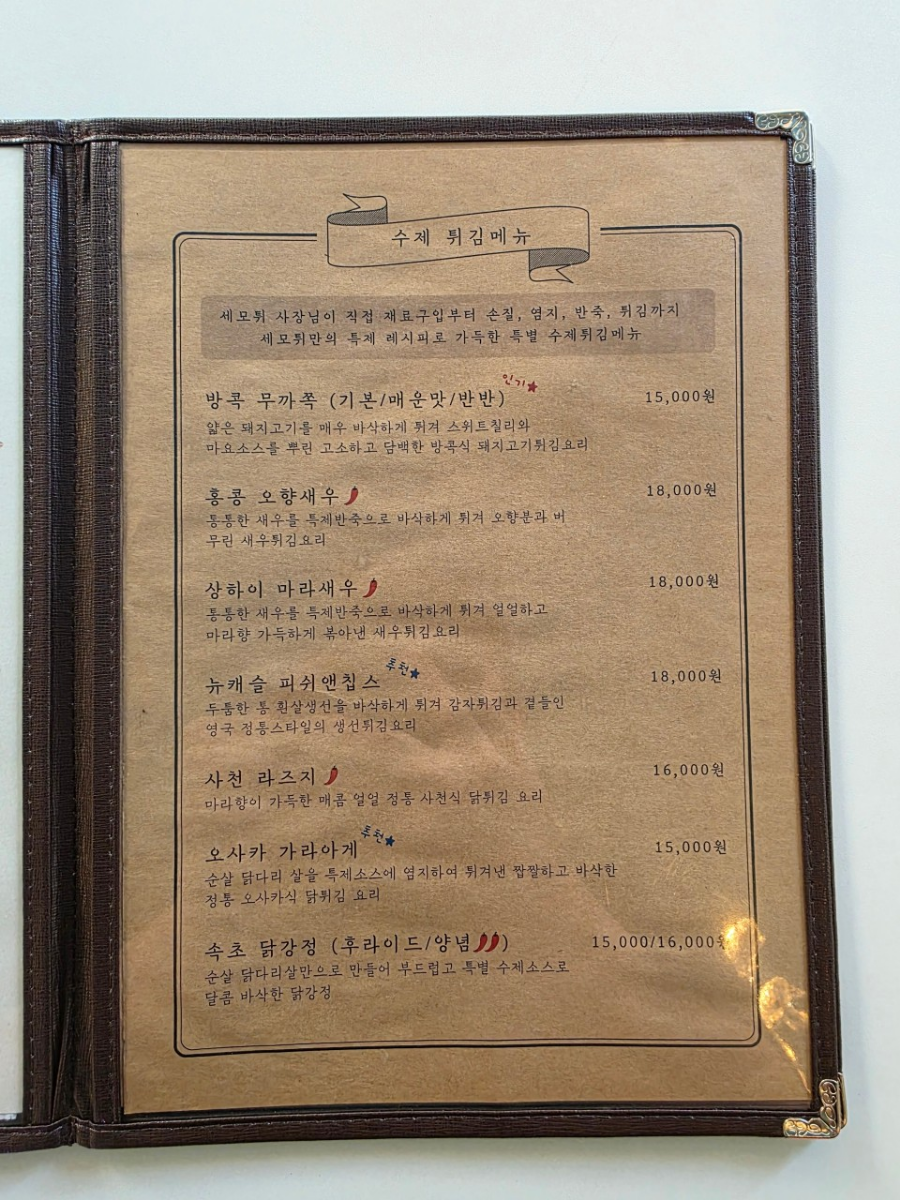 수제 튀김메뉴
세모튀 사장님이 직접 재료구입부터 손질, 염지, 반죽, 튀김까지
세모튀만의 특제 레시피로 가득한 특별 수제튀김메뉴
인기★
방콕 무까쪽 (기본/매운맛/반반) 15,000원
얇은 돼지고기를 매우 바삭하게 튀겨 스위트칠리와
마요소스를 뿌린 고소하고 담백한 방콕식 돼지고기튀김요리
홍콩 오향새우 18,000원
통통한 새우를 특제반죽으로 바삭하게 튀겨 오향분과 버
무린 새우튀김요리
상하이 마라새우 18,000원
통통한 새우를 특제반죽으로 바삭하게 튀겨 얼얼하고
마라향 가득하게 볶아낸 새우튀김요리
추천★
뉴캐슬 피쉬앤칩스 18,000원
두툼한 통 흰살생선을 바삭하게 튀겨 감자튀김과 곁들인
영국 정통스타일의 생선튀김요리
사천 라즈지 16,000원
마라향이 가득한 매콤 얼얼 정통 사천식 닭튀김 요리
추천★
오사카 가라아게 15,000원
순살 닭다리 살을 특제소스에 염지하여 튀겨낸 짭짤하고 바삭한
정통 오사카식 닭튀김 요리
속초 닭강정 (후라이드/양념) 15,000/16,000원
순살 닭다리살만으로 만들어 부드럽고 특별 수제소스로
달콤 바삭한 닭강정